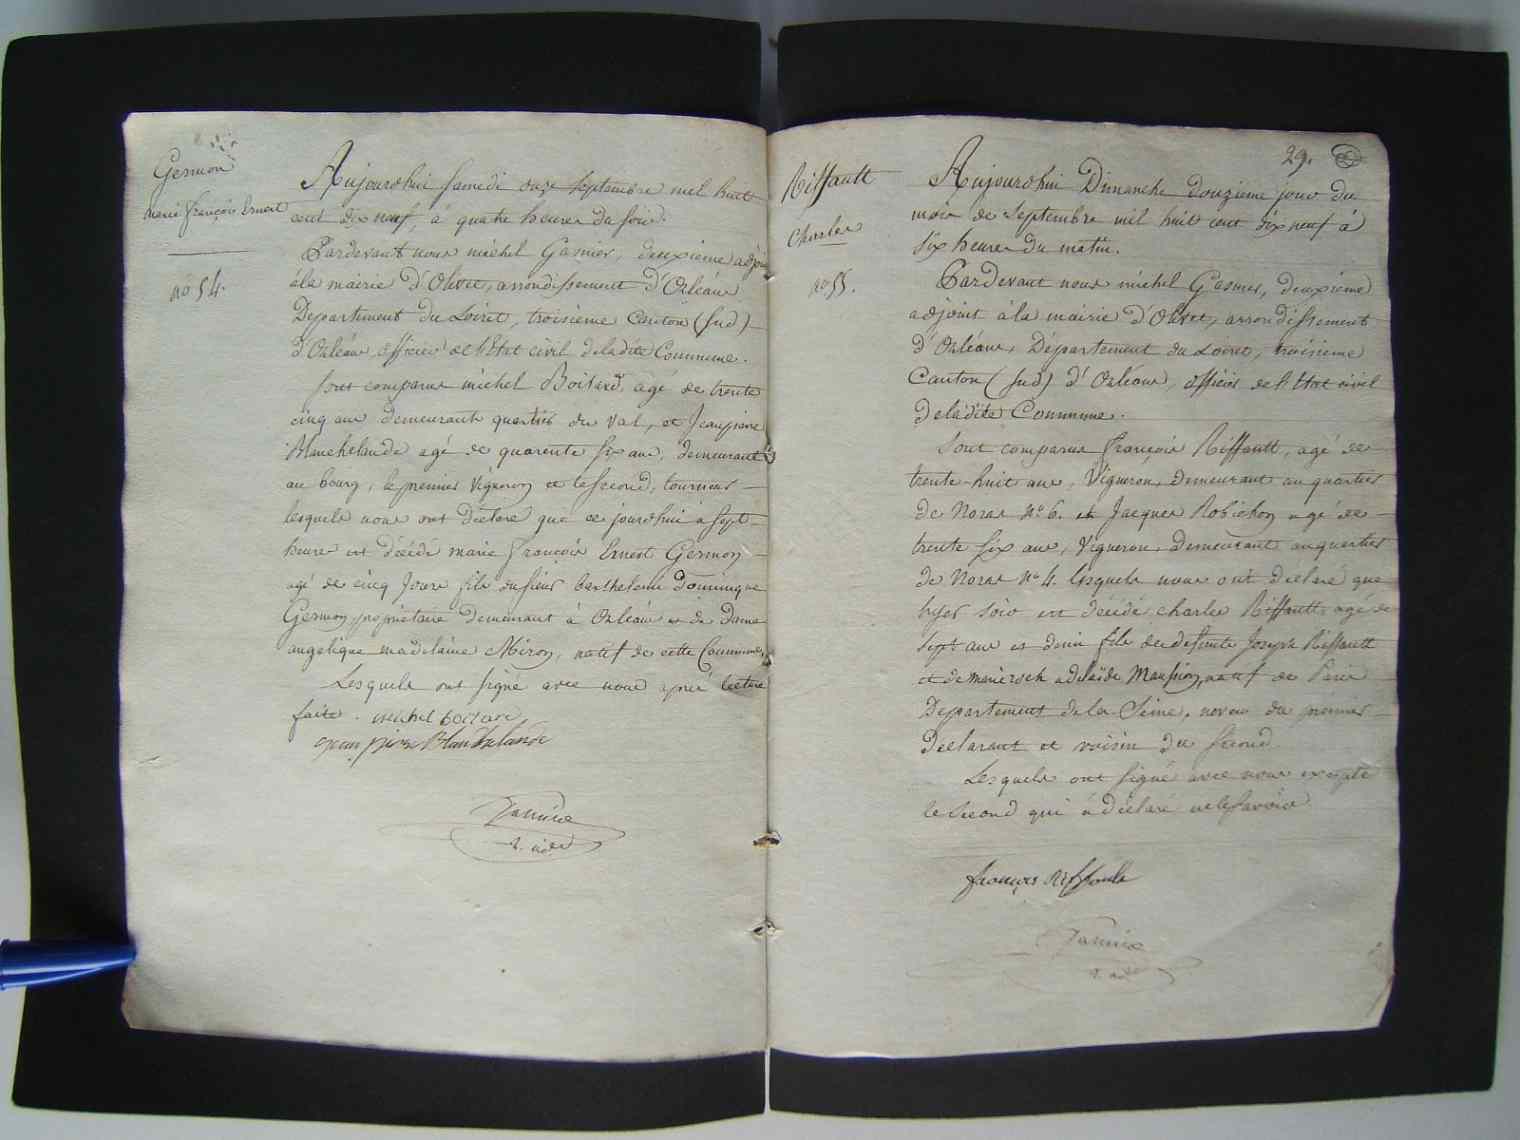 Germon
marie françois Ernest
no 54.
Aujourdhui samedi onze septembre mil huit
cent dix neuf, à quatre heures du soir.
Pardevant nous michel Garnier, deuxième adjoint
à la mairie d'Olivet, arrondissement d'Orléans
Département du Loiret, troisieme Canton (sud)
d'Orléans, officier de l'Etat civil deladite Commune.
Sont comparus michel Boitard, agé de trente
cinq ans demeurant quartier du Val, et Jeanpierre
Blanchelande agé de quarente six ans, demeurant
au bourg, le premier Vigneron et le second, tourneur
lesquels nous ont déclaré que ce jourdhui a sept
heures est décédé marie françois Ernest Germon
agé de cinq jours fils du sieur barthelemi Dominique
Germon, propriétaire demeurant à Orléans et de Dame
angelique madelaine Miron, natif de cette Commune,
Lesquels ont signé avec nous après lecture
faite. michel boitard
jean pierre Blanchelande
Garnier
2. adt
29.
Riffault
Charles
no 55.
Aujourdhui Dimanche douzieme jour du
mois de Septembre mil huit cent dix neuf à
six heures du matin.
Pardevant nous michel Garnier, deuxieme
adjoint à la mairie d'Olivet, arrondissement
d'Orléans, Département du Loiret, troisieme
Canton (sud) d'Orléans, officier de l'Etat civil
deladite Commune.
Sont comparus françois Riffault, agé de
trente-huit ans, Vigneron, demeurant au quartier
de Noras No 6. et Jacques Robichon agé de
trente six ans, Vigneron, demeurant au quartier
de Noras No 4. lesquels nous ont déclaré que
hyer soir est décédé charles Riffault agé de
sept ans et demi fils de defunte Joseph Riffault
et de adelaïde Maussion, natif de Paris
Departement de la Seine, neveu du premier
déclarant et voisin du second
Lesquels ont signé avec nous excepté
le second qui à déclaré ne le savoir
françois Riffault
Garnier
2. adt